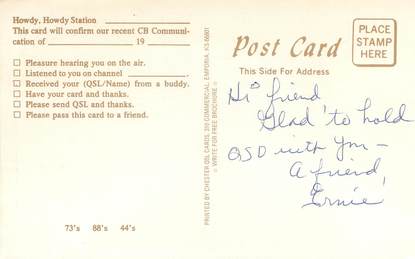 Howdy, Howdy Station
This card will confirm our recent CB Communi-
cation of 19
Pleasure hearing you on the air.
Listened to you on channel
Received your (QSL/Name) from a buddy.
Have your card and thanks.
Please send QSL and thanks.
Please pass this card to a friend.
73's 88's 44's
PRINTED BY CHESTER QSL CARDS, 310 COMMERCIAL, EMPORIA, KS 66801
WRITE FOR FREE BROCHURE
Post Card
This Side For Address
PLACE
STAMP
HERE
Hi friend
Glad to hold
QSO with you -
A friend,
Ernie